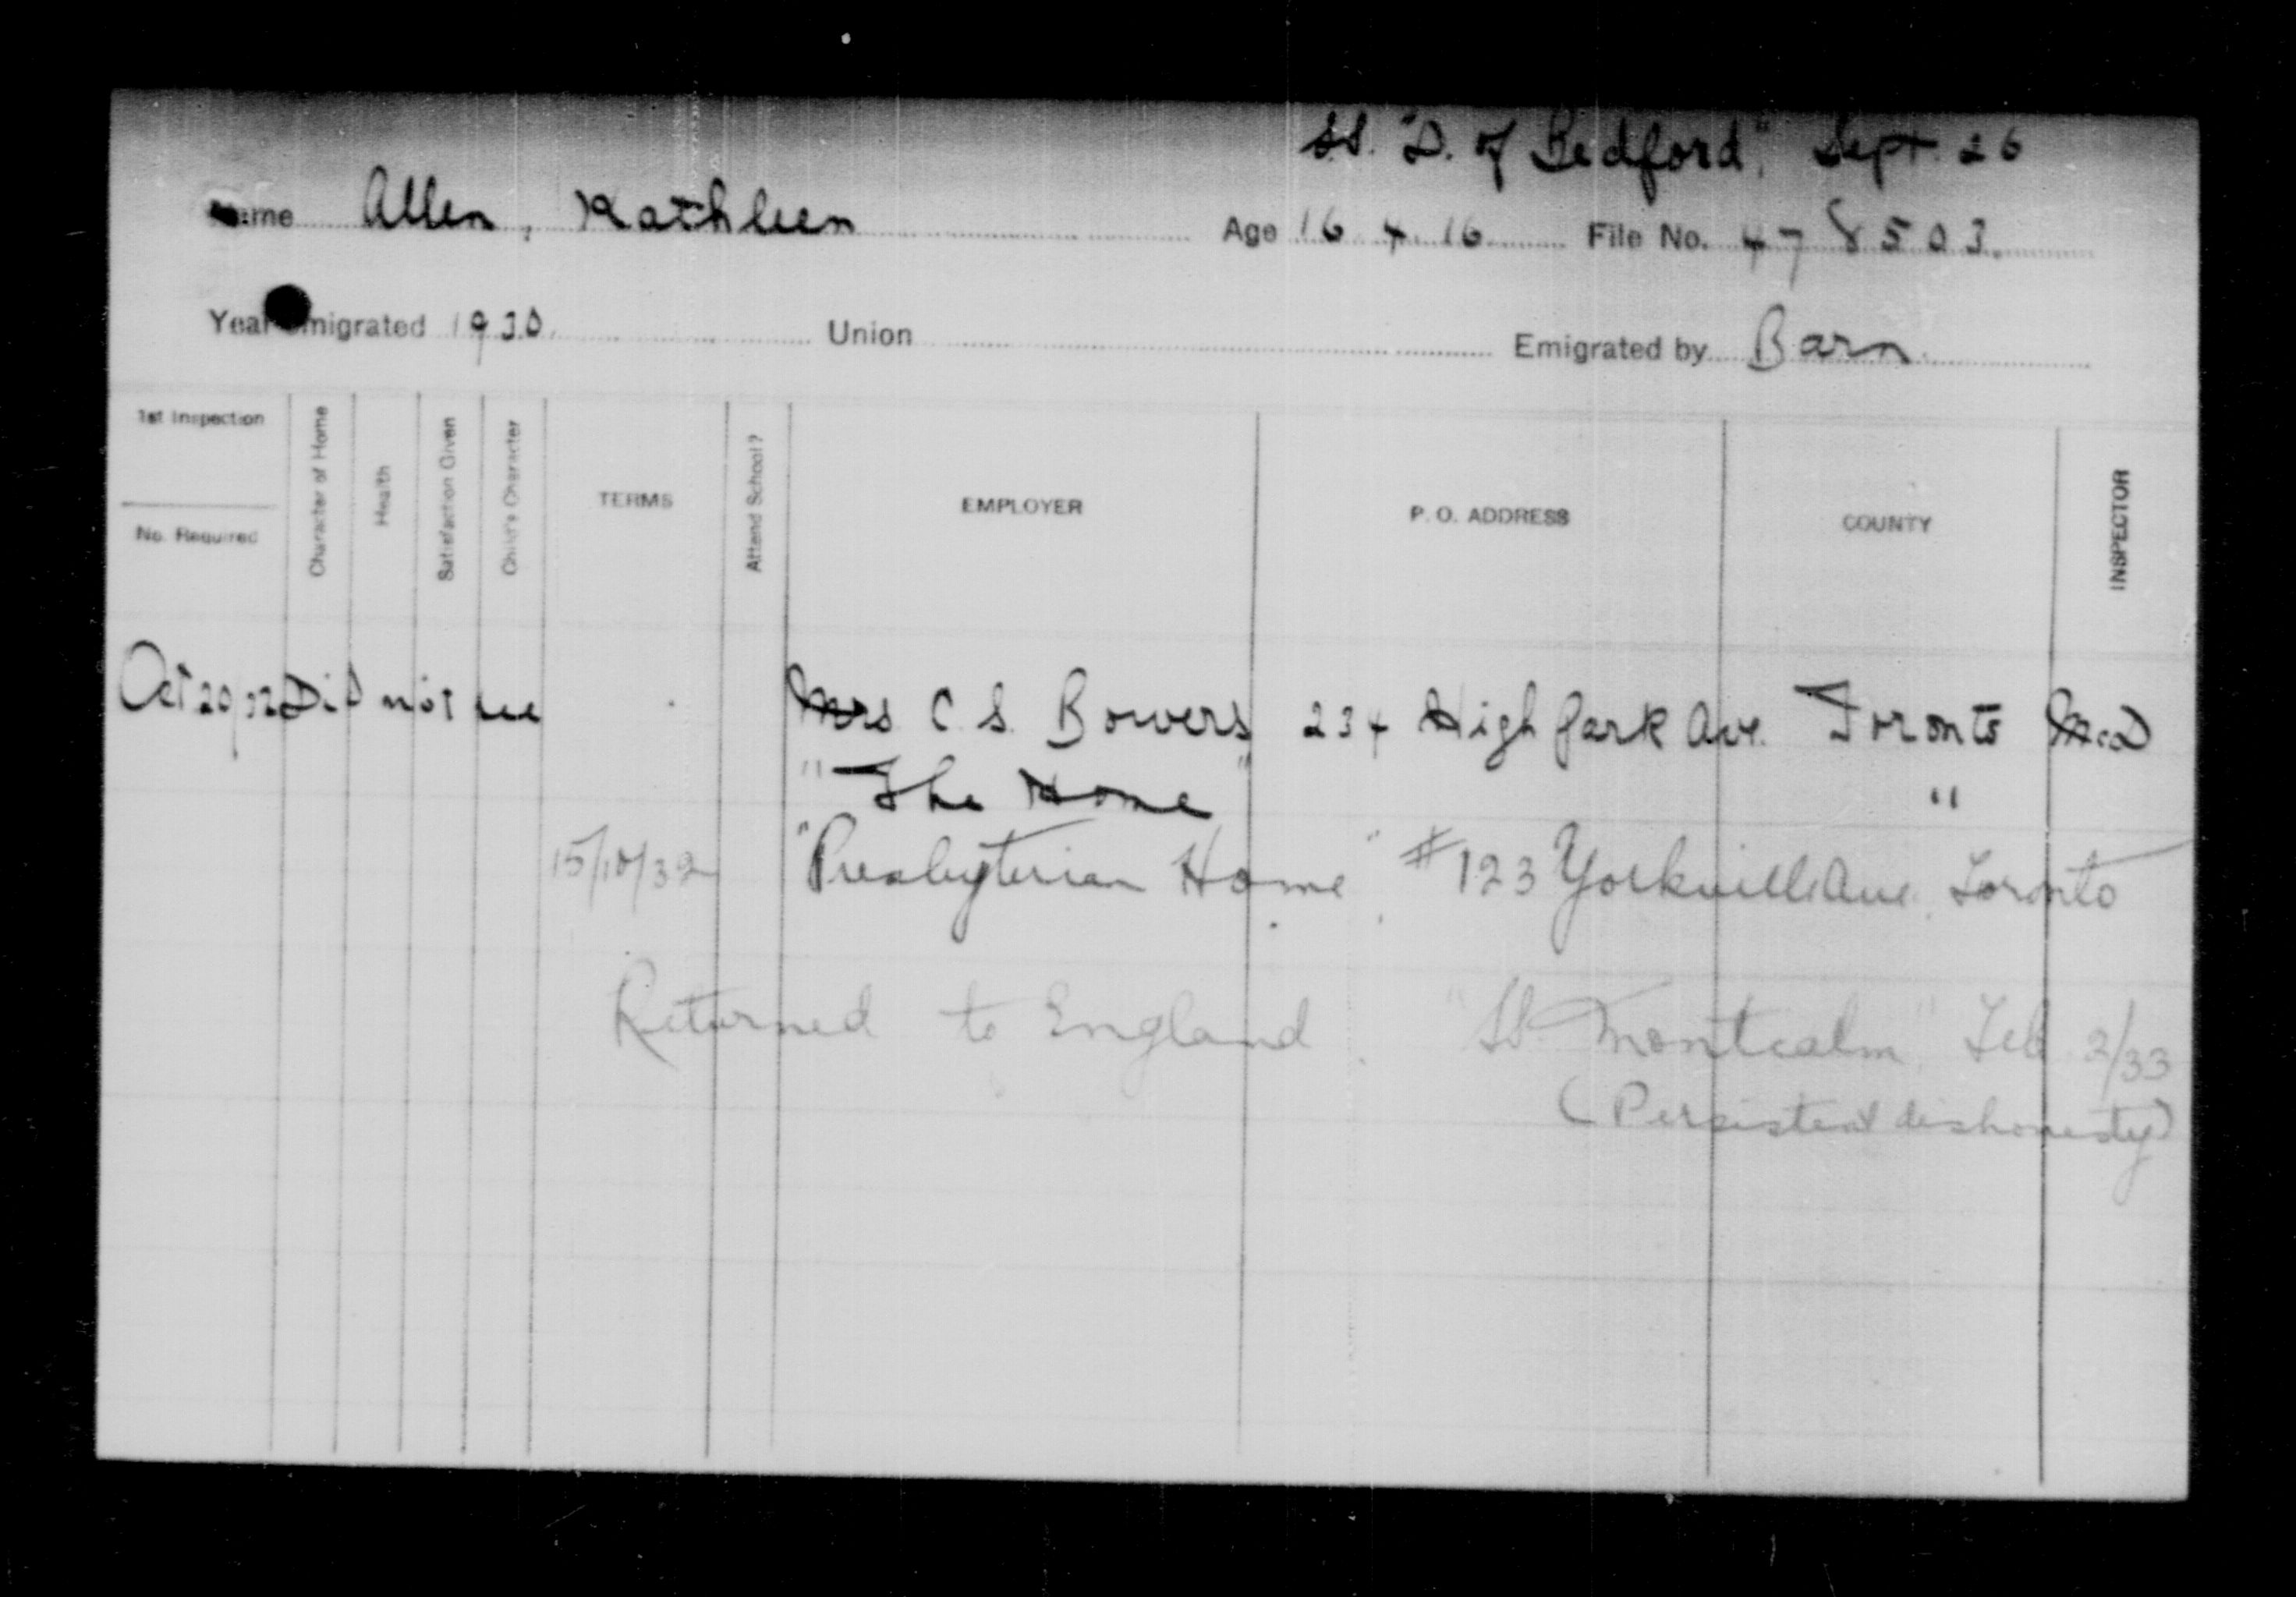 SS. "D. of Bedford," Sept. 26
Name Allen, Kathleen Age 16 4 16 File No. 478503.
Year Emigrated 1930. Union Emigrated by Barn.
1st Inspection
No. Required
Character of Home
Health
Satisfaction Given
Child's Character
TERMS
Attend School?
EMPLOYER
P. O. ADDRESS
COUNTY
INSPECTOR
Oct 20/32 Did not see Mrs C. S. Bowers 234 High Park Ave. Toronto
"The Home" "
15/10/32 "Presbyterian Home" #123 Yorkville Ave. Toronto
Returned to England. "SS. Montcalm" Feb 2/33
(Persistent dishonesty)